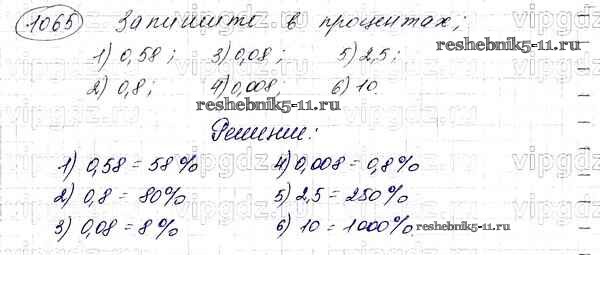 1065 Запишите в процентах;
1) 0,58; 3) 0,08; 5) 2,5;
reshebnik5-11.ru
2) 0,8; 4) 0,008; 6) 10.
reshebnik5-11.ru
Решение:
1) 0,58 = 58% 4) 0,008 = 0,8%
2) 0,8 = 80% 5) 2,5 = 250%
3) 0,08 = 8% 6) 10 = 1000%.
reshebnik5-11.ru